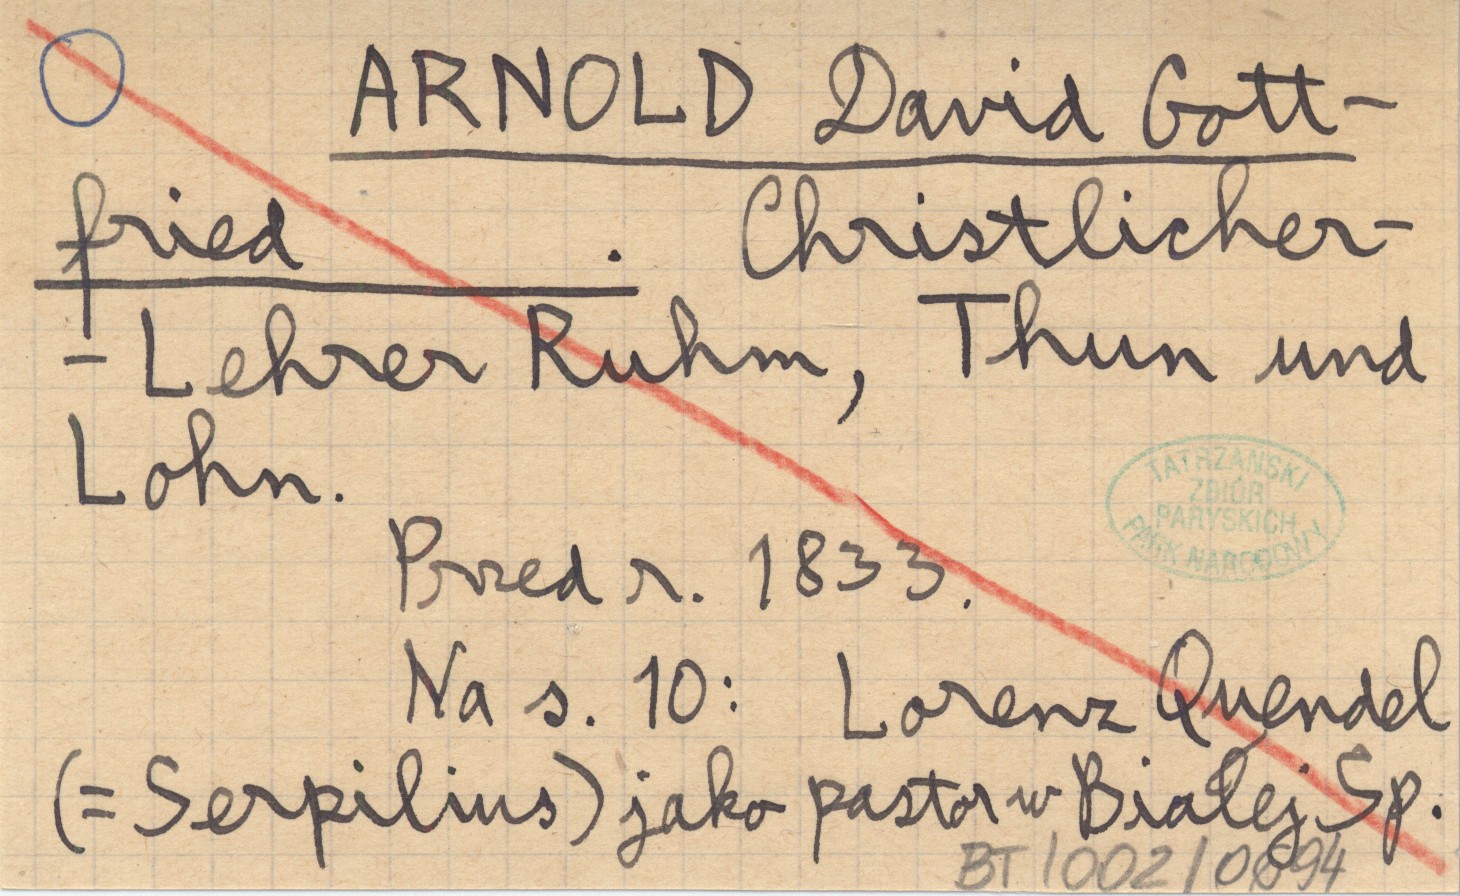 ARNOLD David Gott-
fried . Christlicher-
- Lehrer Ruhm, Thun und
Lohn.
TATRZAŃSKI
ZBIÓR
PARYSKICH
PARK NARODOWY
Przed r. 1833.
Na s. 10: Lorenz Quendel
(= Serpilius) jako pastor w Białej Sp.
BT/002/0694